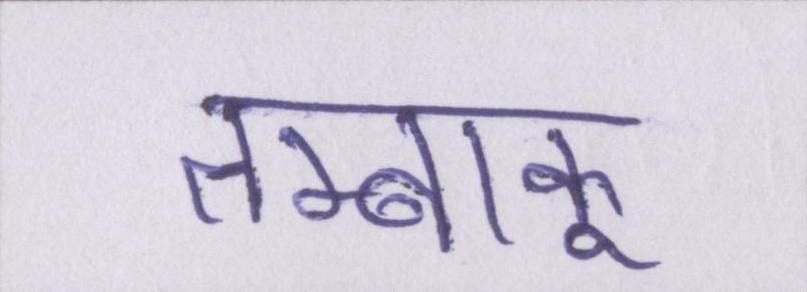 तम्बाकू